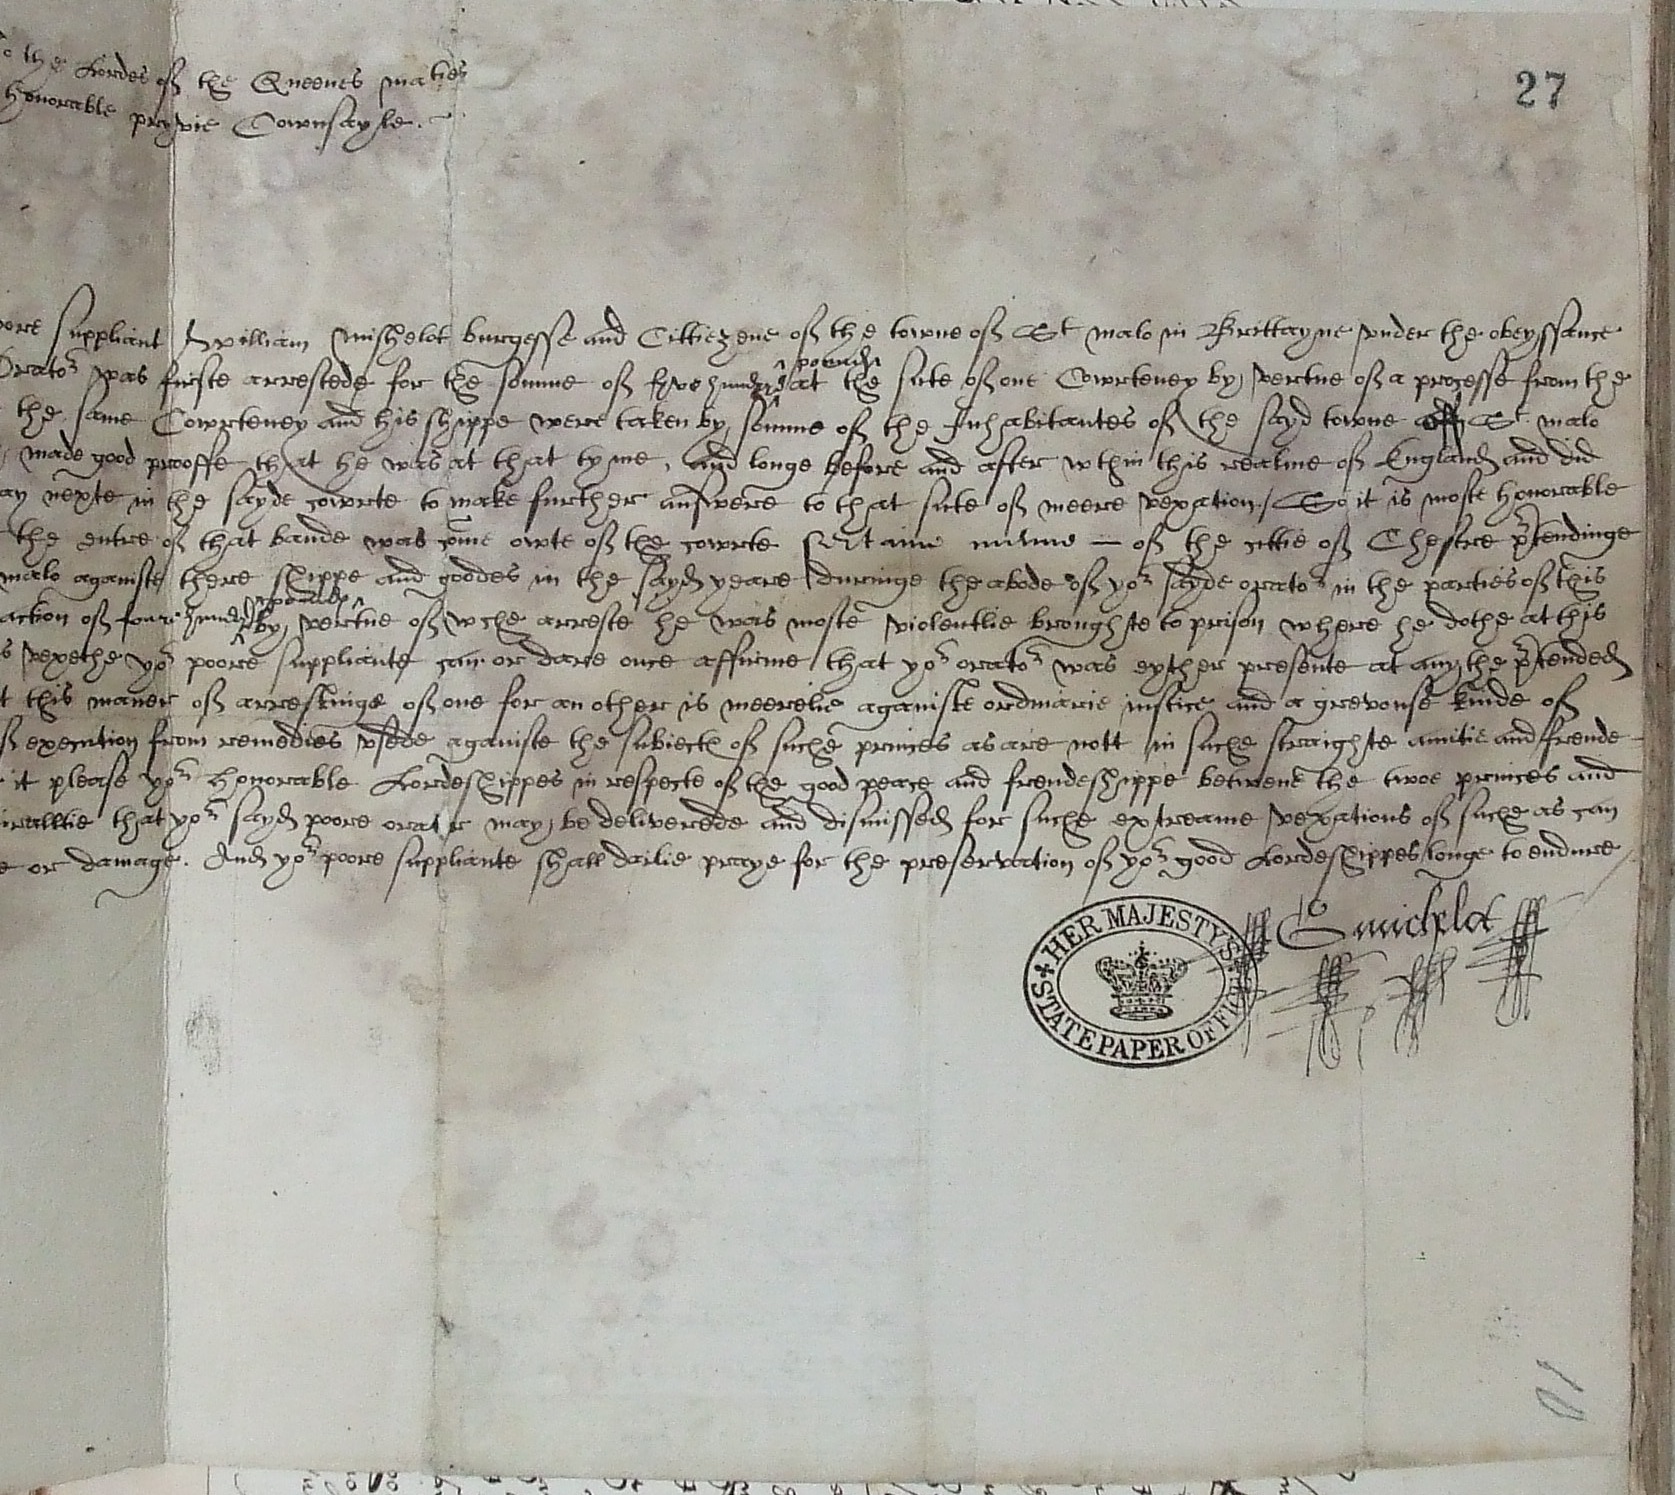 27
To the Lordes of the Queenes maties
honorable pryvie Cownsayle.
poore suppliant William Mishelot burgesse and Cittiezene of the towne of St malo in Brittayne vnder the obeyssance
Orator was firste arrestede for the somme of hundred ^pounds^ at the sute of one Cowrteney by vertue of a processe from the
the same Cowrteney and his shippe were taken by somme of the Inhabitantes of the sayd towne of St malo
made good prooffe that he was at that tyme, and longe before and after wthin this realme of Englande and did
nexte in the sayde cowrte to make further answere to that sute of meere vexation / So it is moste honorable
the entre of that bande was come owte of the cowrte certaine – of the cittie of Chestre prtendinge
malo againste there shippe and goodes in the sayd yeare duringe the abode of yor sayde orator in the parties of this
action of fowre hundred ^pounds^ by vertue of wche arreste he was moste violentlie broughte to prison where he dothe at this
vexethe yor poore suppliante can or dare once affirme that yor orator was eyther presente at any the prtended
this maner of arrestinge of one for an other is meerelie againste ordinarie justice and a grevouse kinde of
of execution from remedies vsede againste the subiects of suche princes as are nott in suche straighte amitie and frende-
it please yor honorable Lordeshippes in respecte of the good peace and frendeshippe betwene the twoe princes and
that yor sayd poore orator may be deliverede and dismissed for suche extreame vexations of suche as can
or damage. And yor poore suppliante shall dailie praye for the preservation of yor good Lordeshippes longe to endure
G michelot
HER MAJESTY'S
STATE PAPER OFFICE